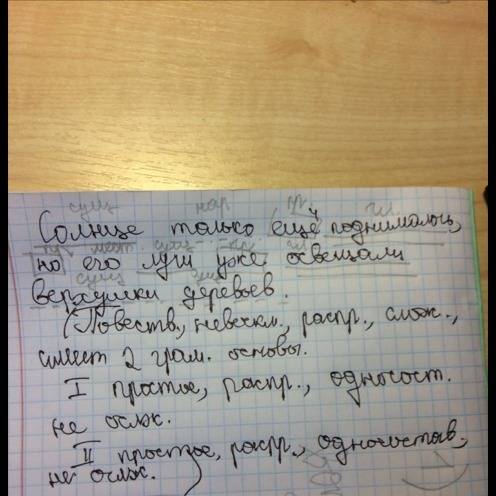 сущ нар гл
Солнце только ещё поднималось,
мест. сущ. гл
но его лучи уже освещали
сущ сущ
верхушки деревьев.
(Повеств., невоскл., распр., слож.,
имеет 2 грам. основы.
I простое, распр., односост.
не ослж.
II простое, распр., односостав,
не ослж.